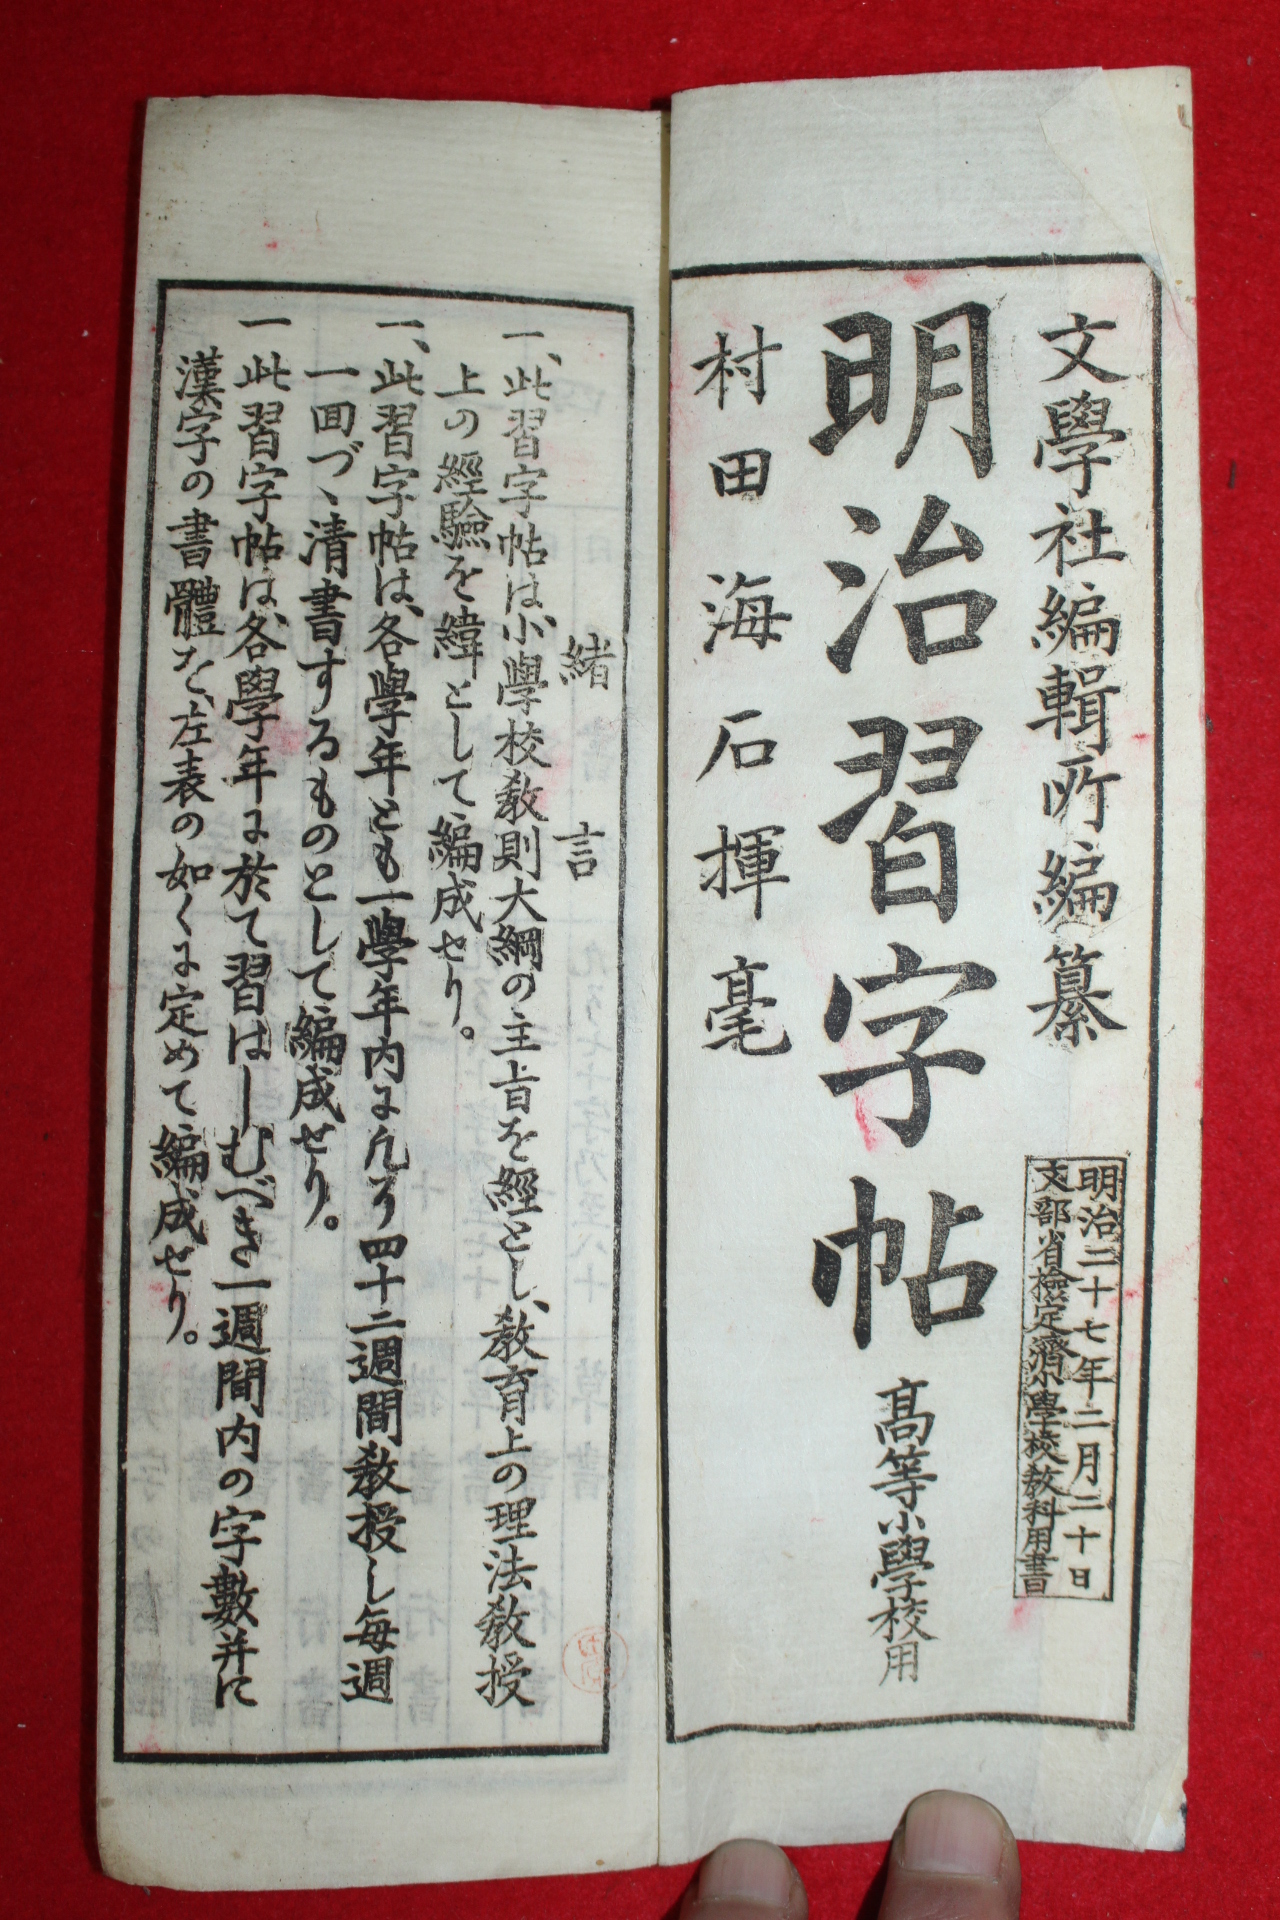 文學社編輯所編纂
明治二十七年二月二十日
文部省檢定濟小學校敎科用書
明治習字帖
高等小學校用
村田海石揮毫
緒言
一、此習字帖は、小學校敎則大綱の主旨を經とし、敎育上の理法敎授
上の經驗を緯として、編成せり。
一、此習字帖は、各學年とも一學年内に凡そ四十二週間敎授し每週
一回づゝ清書するものとして編成せり。
一此習字帖は、各學年に於て習はしむべき一週間内の字數并に
漢字の書體を、左表の如くに定めて編成せり。